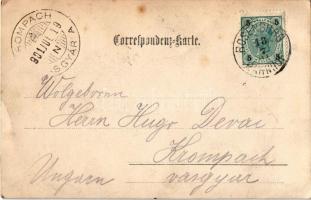 KROMPACH
901 JUL 19
VASGYÁR
Correspondenz-Karte.
5 5
Wolgeboren
Herrn Hugo Devai
Krompach
Ungarn vasgyar